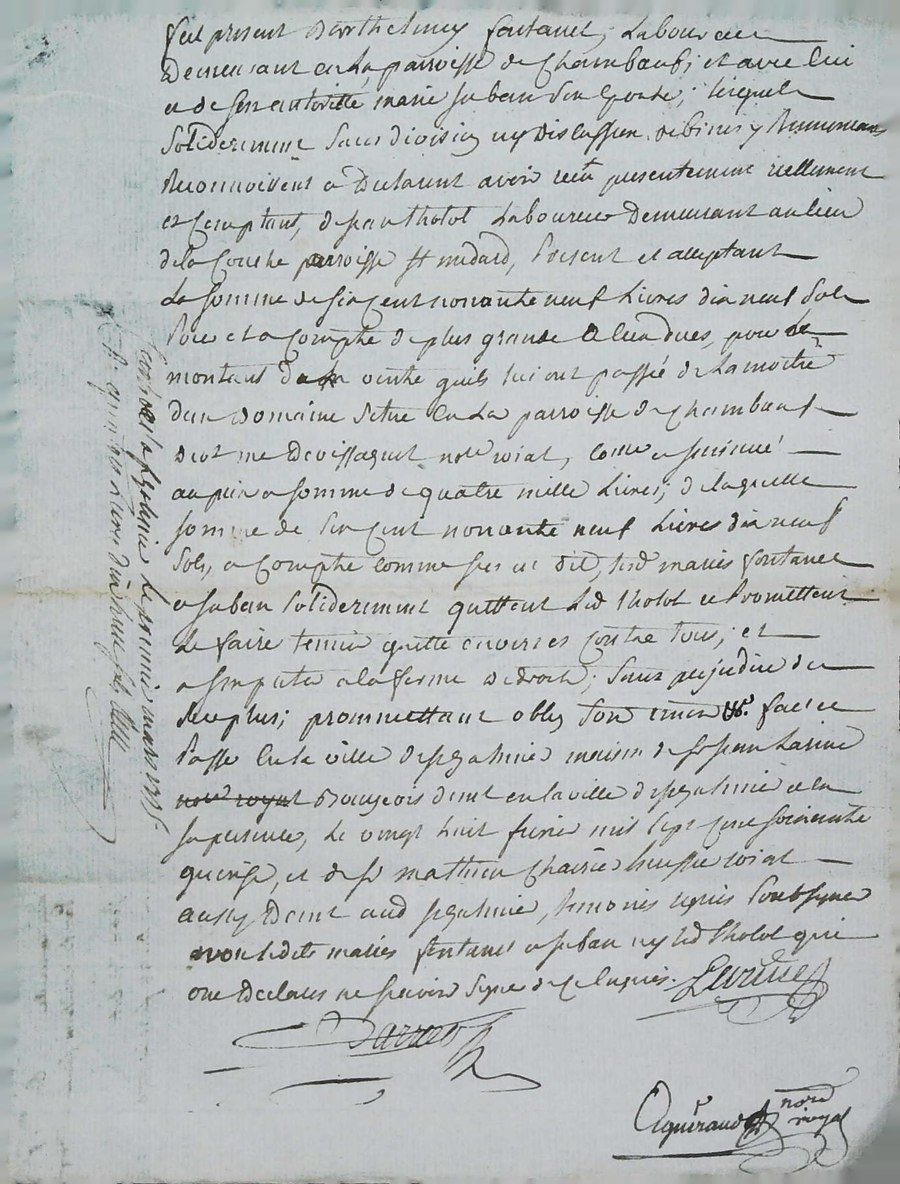 fut present Barthelmey fontanet, Laboureur
Demeurant en La parroisse de Chambœuf; et avec lui
et de son autorité marie juban son Epouse; lesquels
Soliderement Sans division ny Discussion de biens y Renonceans
Reconnoissent et Declarent avoir reçu presentement reellement
et Comptant, de jean tholot Laboureur Demeurant au lieu
de la Couche parroisse st medard, Present et acceptant
La somme de Six Cent nonante neuf Livres dix neuf Sols
Pour et a Compte de plus grande a lui dues, pour le
montant de la vente quils lui ont passé de La moitié
dun Domaine Situé en La parroisse de Chambœuf
not.re roial,
au prix et somme de quatre mille Livres; de laquelle
somme de Six Cent nonante neuf Livres dix neuf
Sols, a Compte comme jus est dit, lesd mariés fontanet
et juban soliderement quittent Led tholot et Promettent
Le faire tenir quitte envers et Contre tous; et
a la forme de droit; Sans prejudice du
Surplus; prommettant oblig Soum renon &. fait et
Passé En la ville de st galmier maison de sr jean
notre royal Bourgeois demt en la ville de st galmier et en
sa presence, Le vingt huit fevrier mil sept cent soixante
quinze, et de sr mathieu huissier roial
aussy Demt aud st galmier, temoins requis soubsignés
non lesdits mariés fontanet et juban ny led tholot qui
ont Declarés ne sçavoir signé de ce Enquis.
nore
royal
a st galmier Le premier mars 1775